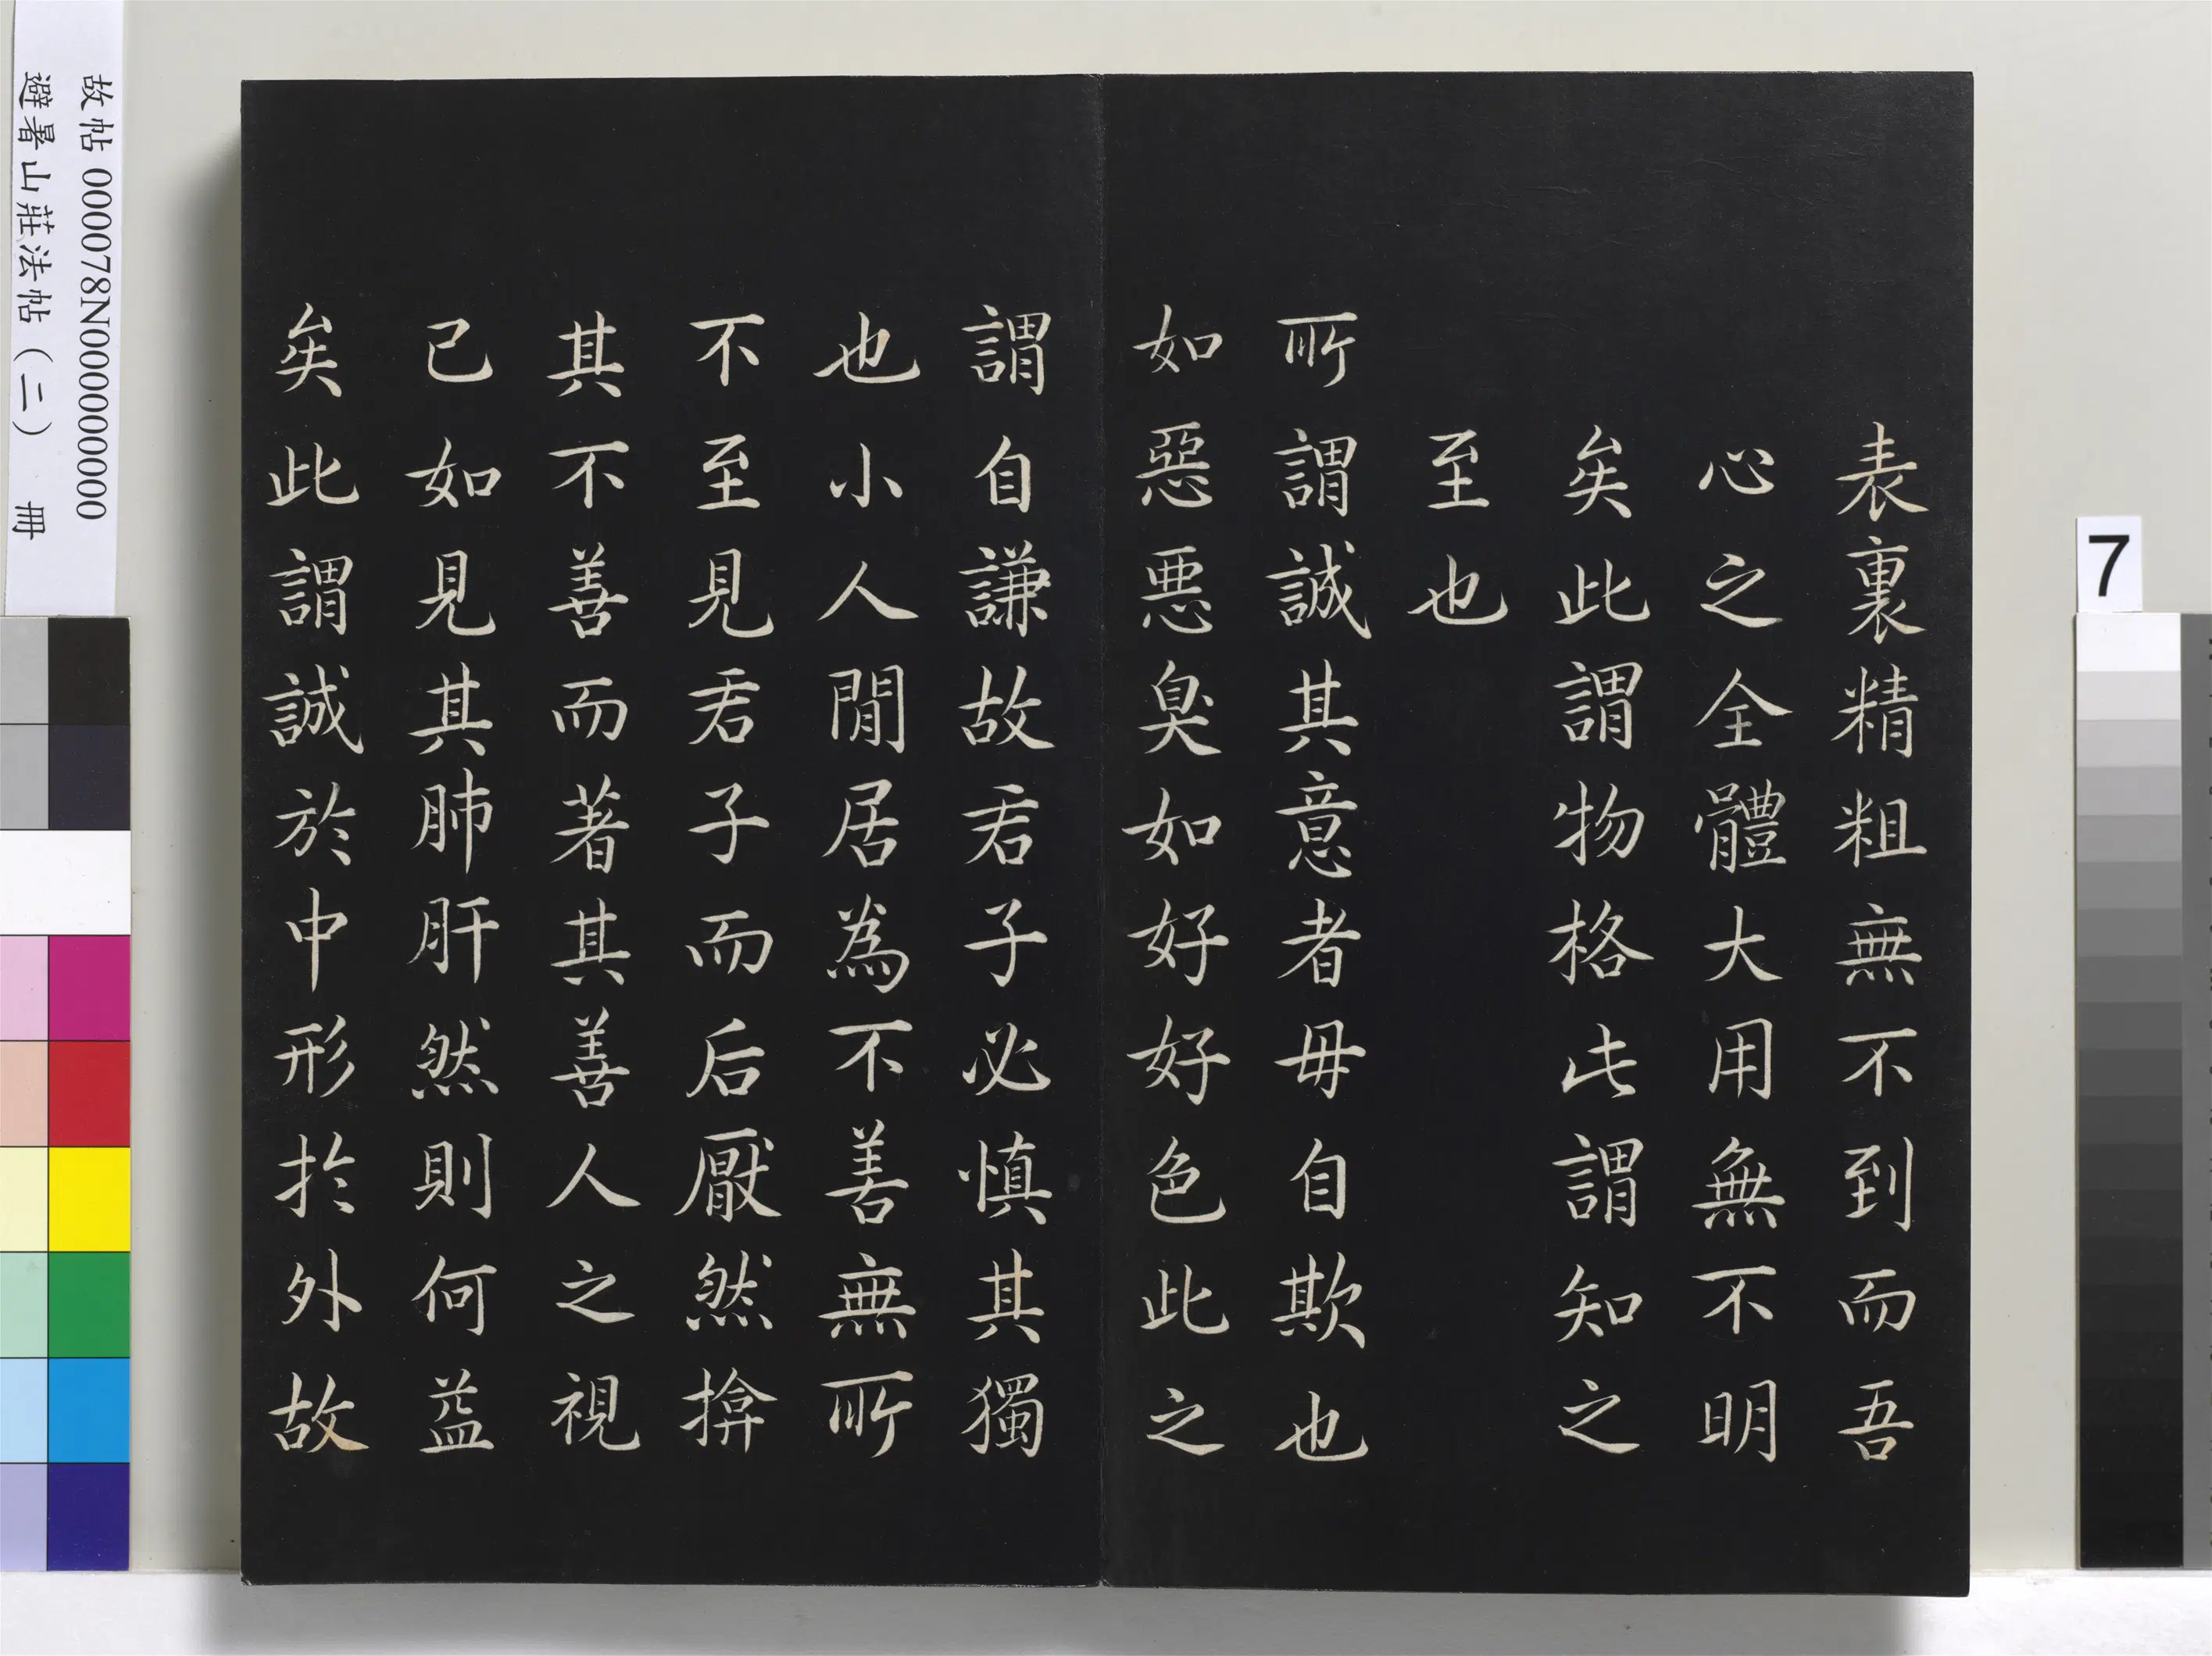 表裏精粗無不到而吾
心之全體大用無不明
矣此謂物格此謂知之
至也
所謂誠其意者毋自欺也
如惡惡臭如好好色此之
謂自謙故君子必慎其獨
也小人閒居為不善無所
不至見君子而后厭然揜
其不善而著其善人之視
己如見其肺肝然則何益
矣此謂誠於中形於外故
故帖 000078N000000000
避暑山莊法帖(二) 冊
7